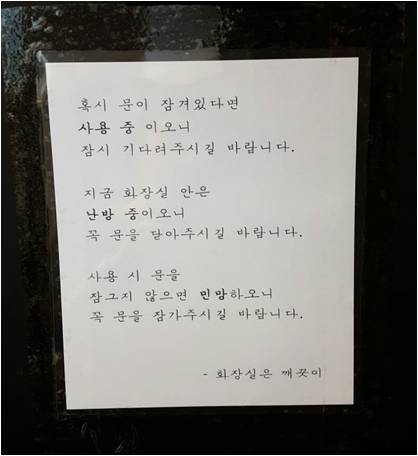 혹시 문이 잠겨있다면
사용 중 이오니
잠시 기다려주시길 바랍니다.
지금 화장실 안은
난방 중이오니
꼭 문을 닫아주시길 바랍니다.
사용 시 문을
잠그지 않으면 민망하오니
꼭 문을 잠가주시길 바랍니다.
- 화장실은 깨끗이